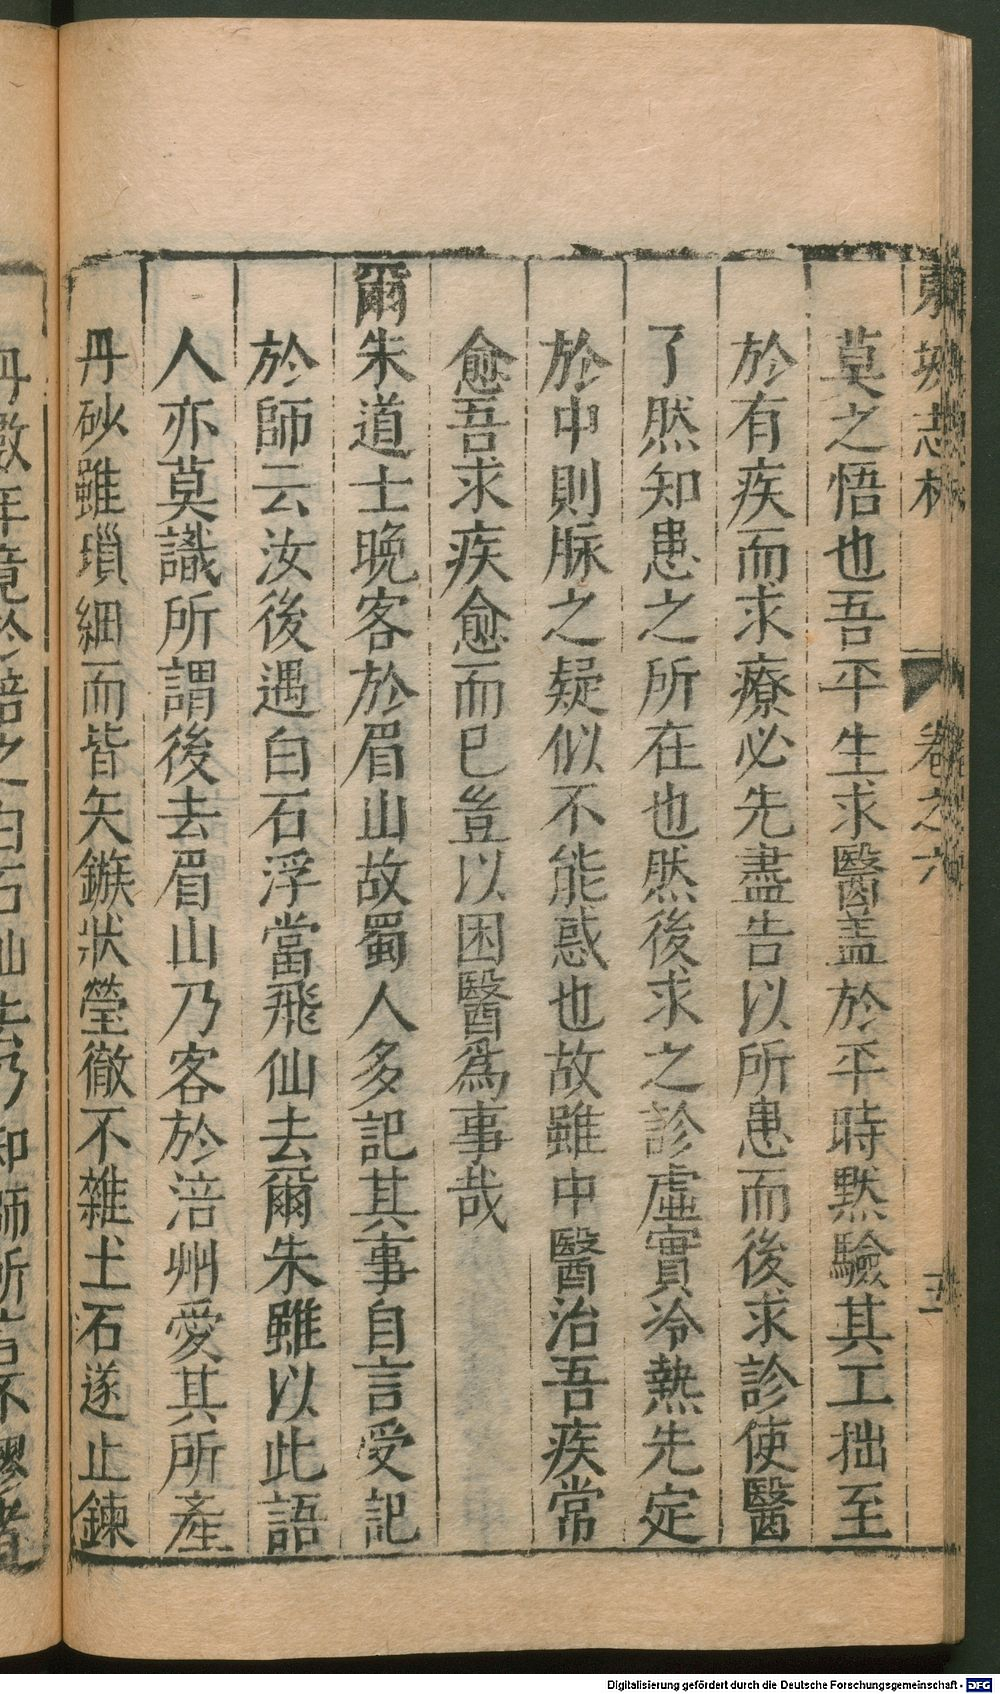 東坡志林 卷之六 五
莫之悟也吾平生求醫盖於平時默驗其工拙至
於有疾而求療必先盡告以所患而後求診使醫
了然知患之所在也然後求之診虛實冷熱先定
於中則脉之疑似不能惑也故雖中醫治吾疾常
愈吾求疾愈而已豈以困醫爲事哉
爾朱道士晚客於眉山故蜀人多記其事自言受記
於師云汝後遇白石浮當飛仙去爾朱雖以此語
人亦莫識所謂後去眉山乃客於涪州愛其所產
丹砂雖瑣細而皆矢鏃狀瑩徹不雜土石遂止鍊
丹數年竟於涪之白石仙去乃知師所言不謬
Digitalisierung gefördert durch die Deutsche Forschungsgemeinschaft - DFG